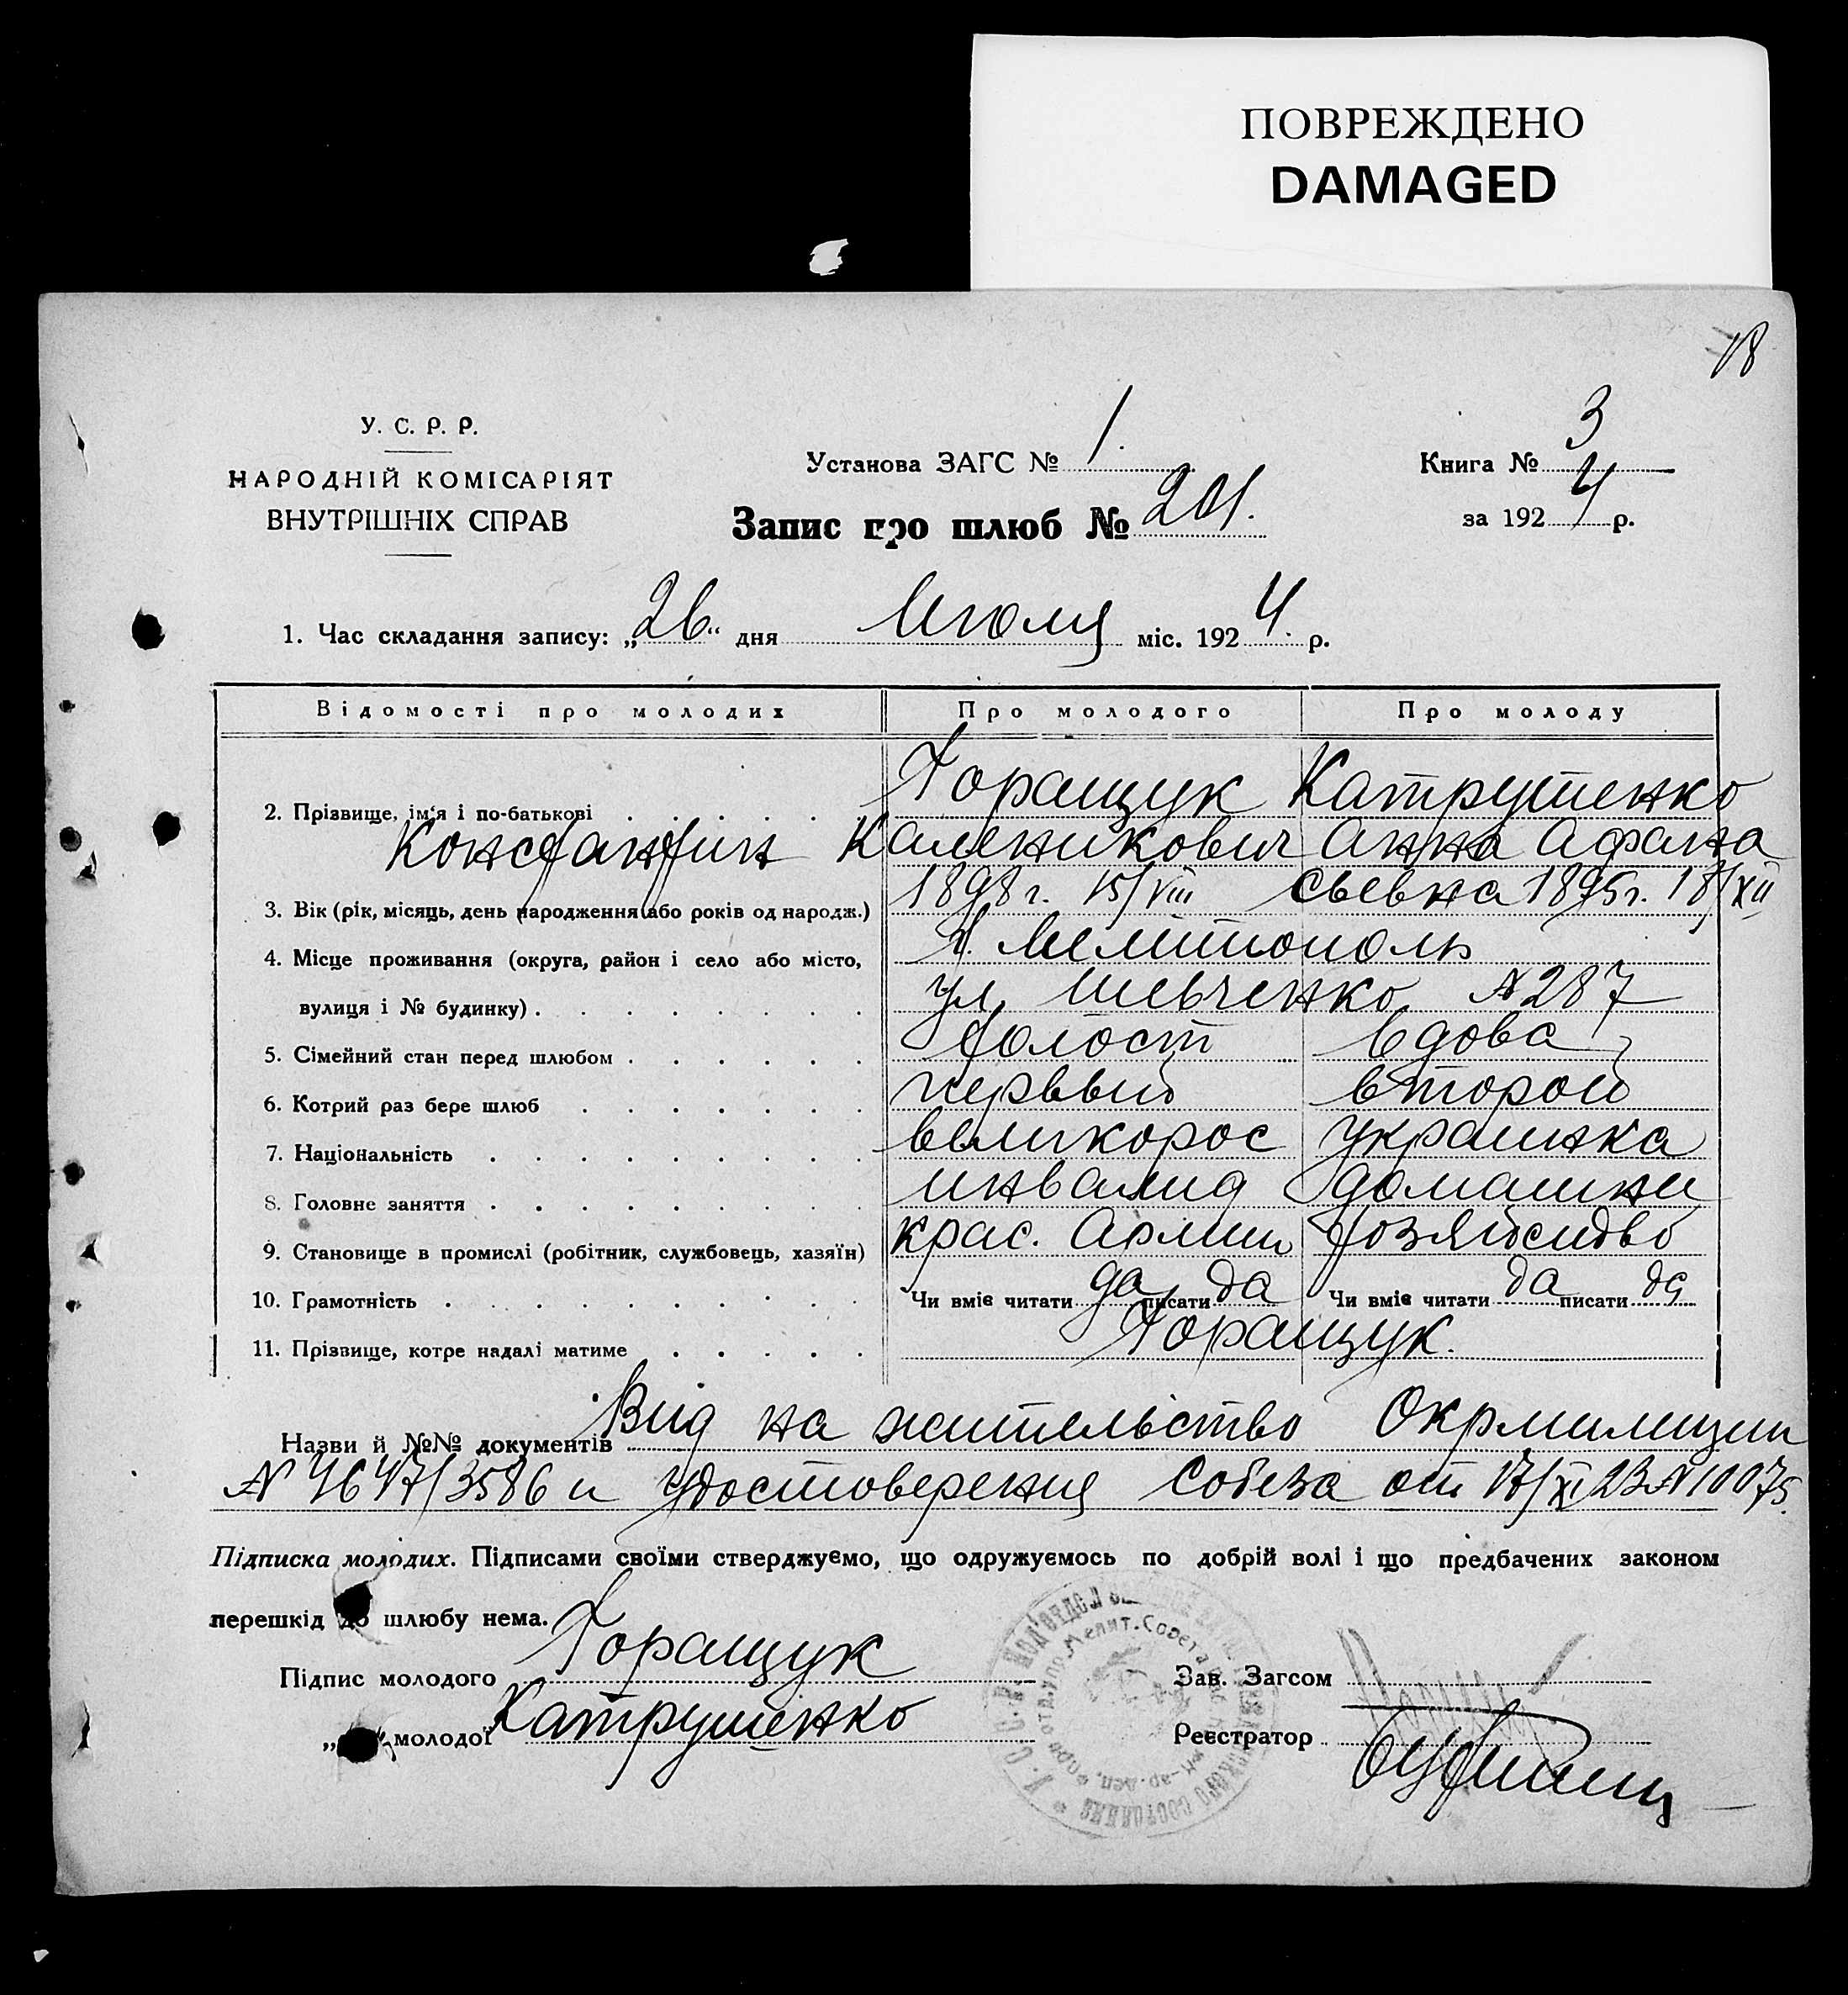 ПОВРЕЖДЕНО
DAMAGED
18
У. С. Р. Р.
НАРОДНІЙ КОМІСАРІЯТ
ВНУТРІШНІХ СПРАВ
Установа ЗАГС № 1.
Книга № 3
за 1924 р.
Запис про шлюб № 201.
1. Час складання запису: „26“ дня Июля міс. 1924. р.
Відомості про молодих Про молодого Про молоду
2. Прізвище, ім‘я і по-батькові . . . . . Горащук Катрушенко
Константин Каленикович Анна Афана
3. Вік (рік, місяць, день народження або років од народж.) 1898 г. 15/VIII сьевна 1895 г. 18/XII
4. Місце проживання (округа, район і село або місто, г. Мелитополь
вулиця і № будинку) . . . . . . . . ул. Шевченко N 287
5. Сімейний стан перед шлюбом . . . . . . Холост вдова
6. Котрий раз бере шлюб . . . . . . . первый второй
7. Національність . . . . . . . . . великорос украинка
8. Головне заняття . . . . . . . . . инвалид домашнее
9. Становище в промислі (робітник, службовець, хазяїн) крас. Армии хозяйство
10. Грамотність . . . . . . . . . . Чи вміє читати да писати да Чи вміє читати да писати да
11. Прізвище, котре надалі матиме . . . . . Горащук.
Назви й №№ документів Вид на жительство Окрмилиции
N 4647/3586 и удостоверения Собеза от 17/XI 23 N 10075.
Підписка молодих. Підписами своїми стверджуємо, що одружуємось по добрій волі і що предбачених законом
перешкід до шлюбу нема.
Підпис молодого Горащук
„ молодої Катрушенко
Зав. Загсом
Реєстратор